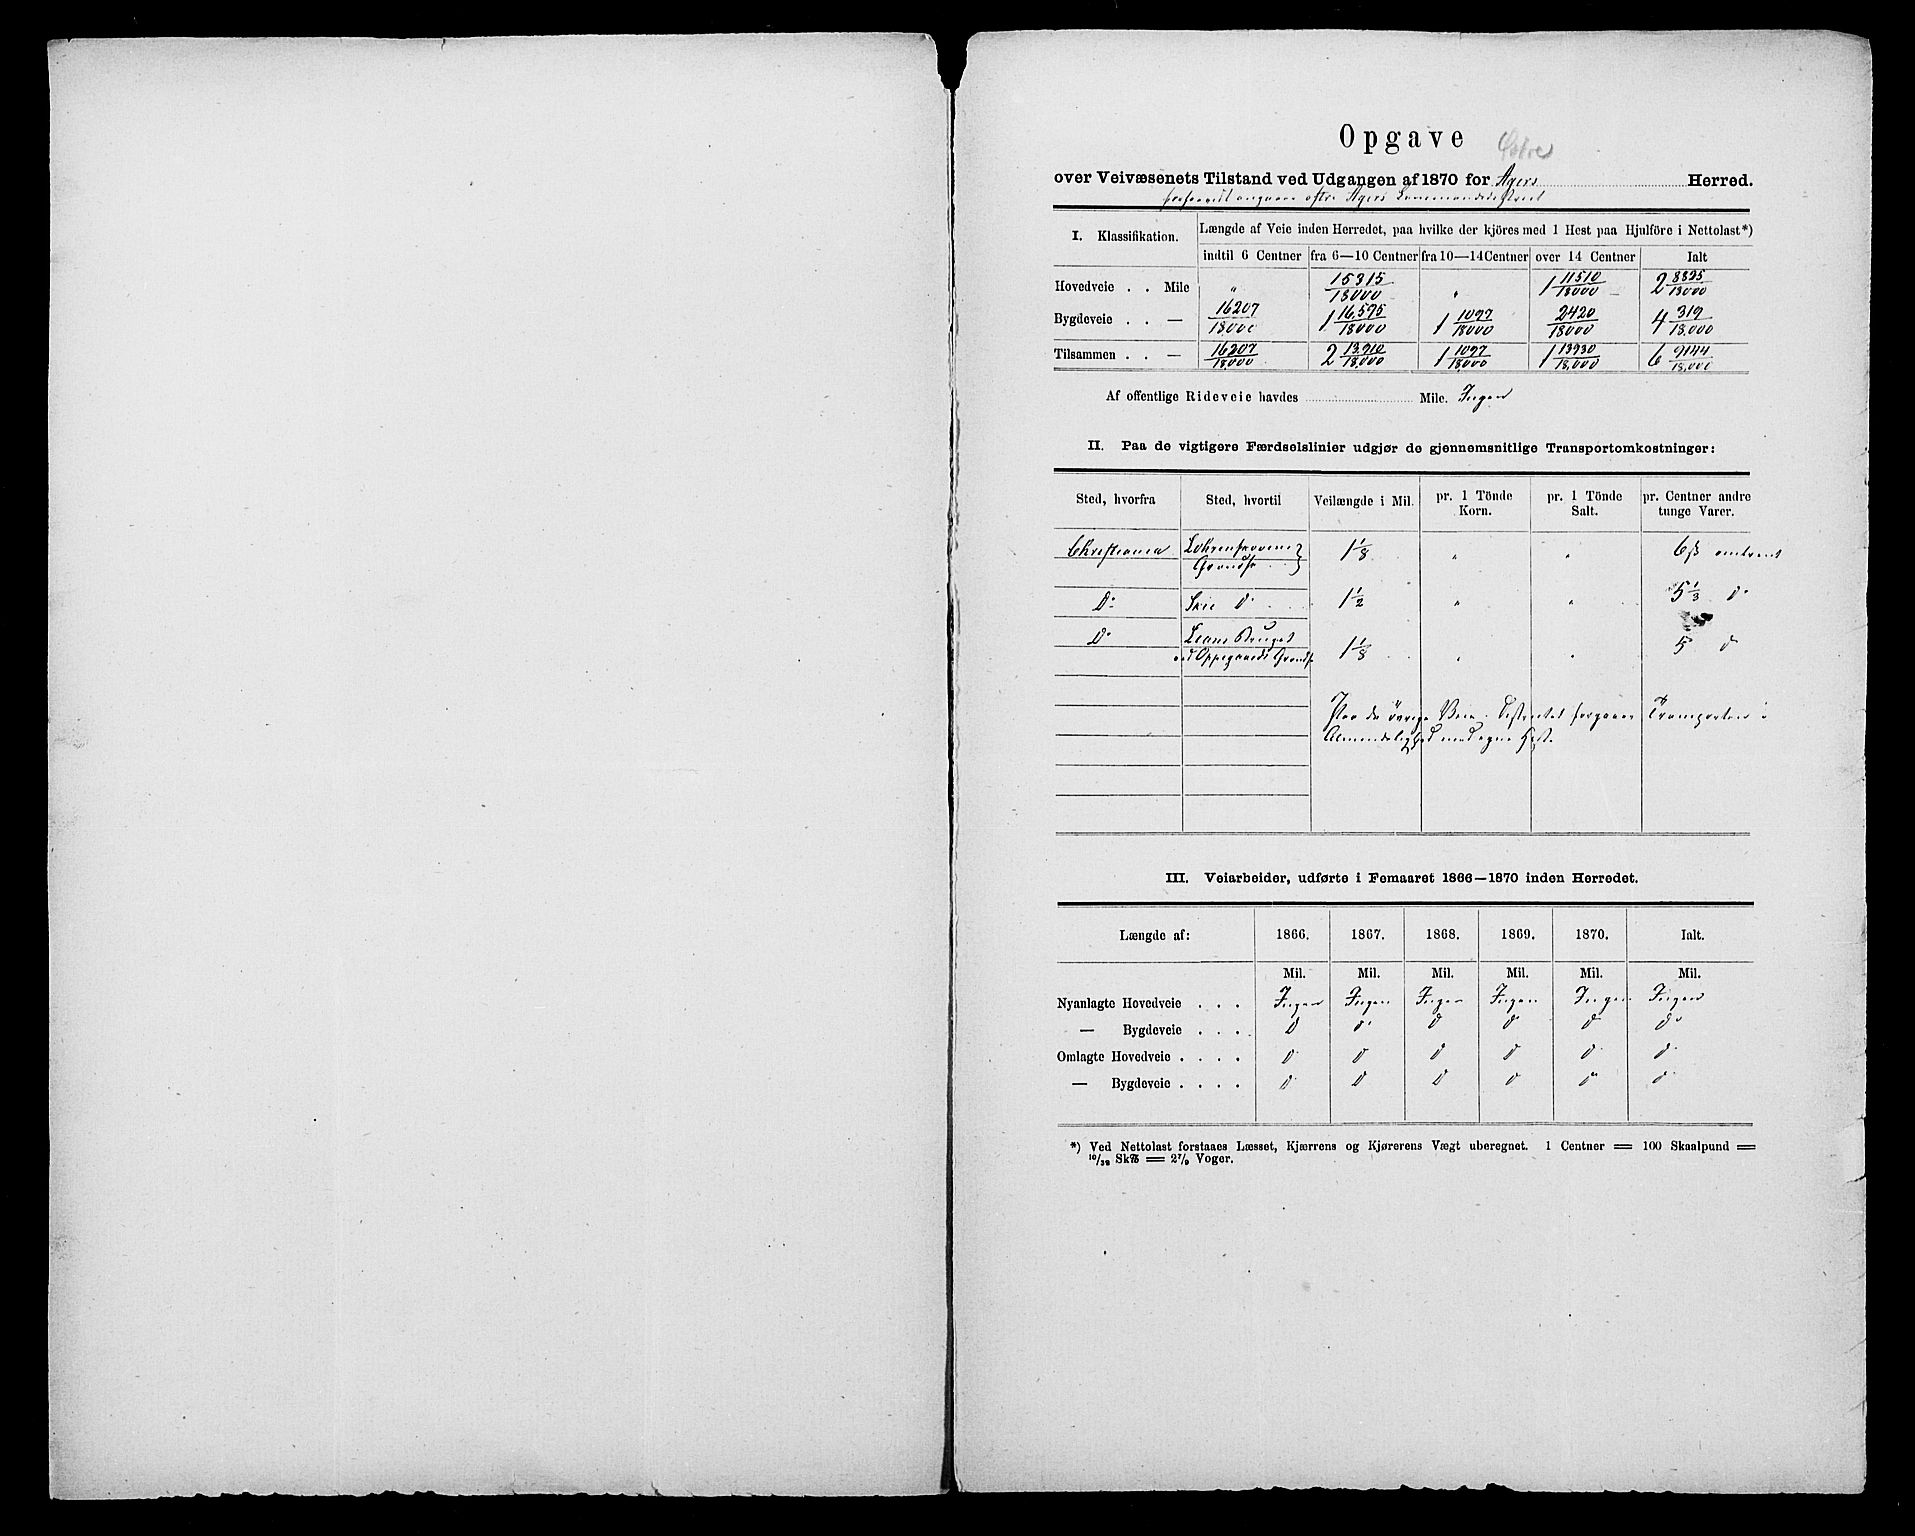 Opgave
over Veivæsenets Tilstand ved Udgangen af 1870 for Agers Herred.
Agers Lensmandsdistrict
I. Klassifikation. Længde af Veie inden Herredet, paa hvilke der kjöres med 1 Hest paa Hjulföre i Nettolast*)
indtil 6 Centner fra 6—10 Centner fra 10—14 Centner over 14 Centner Ialt
Hovedveie . . Mile " 15315/18000 " 1 11510/18000 2 8825/18000
Bygdeveie . . — 16207/18000 1 16,595/18000 1 1097/18000 2420/18000 4 319/18,000
Tilsammen . . — 16207/18,000 2 13,910/18,000 1 1097/18,000 1 13930/18,000 6 9144/18,000
Af offentlige Rideveie havdes Mile. Ingen
II. Paa de vigtigere Færdselslinier udgjør de gjennemsnitlige Transportomkostninger:
Sted, hvorfra Sted, hvortil Veilængde i Mil. pr. 1 Tönde Korn. pr. 1 Tönde Salt. pr. Centner andre tunge Varer.
Christiania 1 1/8 " " 6 ß omtrent
Grændse
Do Skie Do 1 1/2 " " 5 1/3 Do
Do Leans Bruget 1 1/8 " " 5 Do
ved Oppegaards Grændse
Paa de övrige Veie i Districtet foregaaer Transporten i
Almindelighed med egne Hest.
III. Veiarbeider, udførte i Femaaret 1866—1870 inden Herredet.
Længde af: 1866. 1867. 1868. 1869. 1870. Ialt.
Mil. Mil. Mil. Mil. Mil. Mil.
Nyanlagte Hovedveie . . . Ingen Ingen Ingen Ingen Ingen Ingen
— Bygdeveie . . . . Do Do Do Do Do Do
Omlagte Hovedveie . . . . Do Do Do Do Do Do
— Bygdeveie . . . . Do Do Do Do Do Do
*) Ved Nettolast forstaaes Læsset, Kjærrens og Kjørerens Vægt uberegnet. 1 Centner = 100 Skaalpund =
10/32 Sk℔ = 2 7/9 Voger.